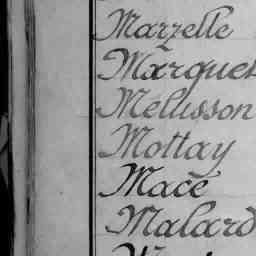 Marzelle
Marquet
Mellisson
Mottay
Macé
Malard